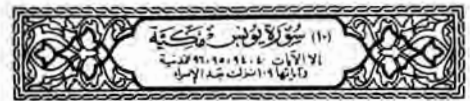 (١٠) سُورَة يونسَ مَكيَّة
إلا الآيات ٤٠، ٩٤، ٩٥، ٩٦ فمدنية
وآياتها ١٠٩ نزلت بعد الإسراء